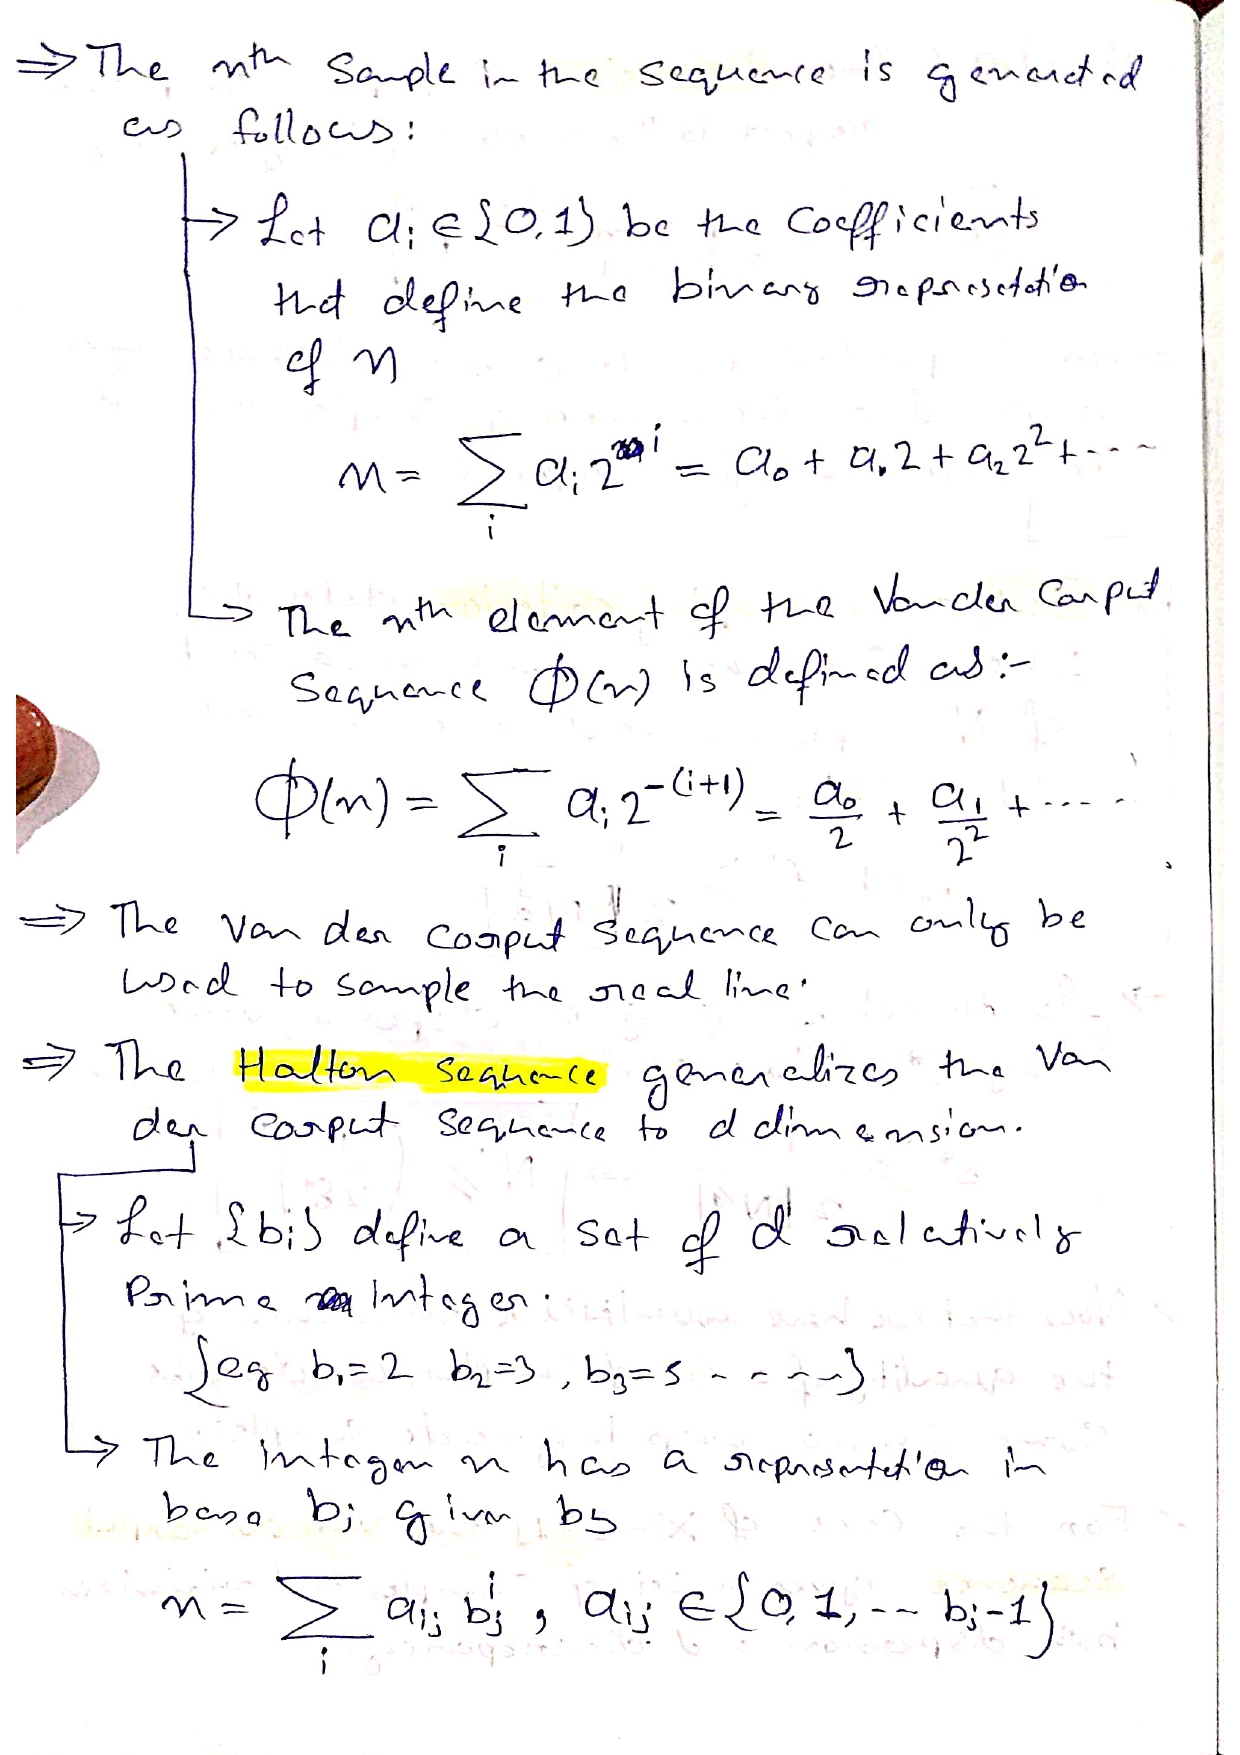 ⇒ The nth Sample in the sequence is generated
as follows:
→ Let aᵢ ∈ {0,1} be the Coefficients
that define the binary represetation
of n
n = Σᵢ aᵢ 2ⁱ = a₀ + a₁2 + a₂2² + ----
→ The nth element of the Van der Corput
Sequence Φ(n) is defined as :-
Φ(n) = Σᵢ aᵢ 2^-(i+1) = a₀/2 + a₁/2² + -----
⇒ The Van der Corput Sequence can only be
used to sample the real line.
⇒ The Halton Sequence generalizes the Van
der Corput Sequence to d dimension.
→ Let {bᵢ} define a set of 'd' relatively
Prime Integer.
{eg b₁=2 b₂=3, b₃=5 -----}
→ The integer n has a representation in
base bⱼ given by
n = Σᵢ aᵢⱼ bⱼⁱ , aᵢⱼ ∈ {0,1,-- bⱼ-1}